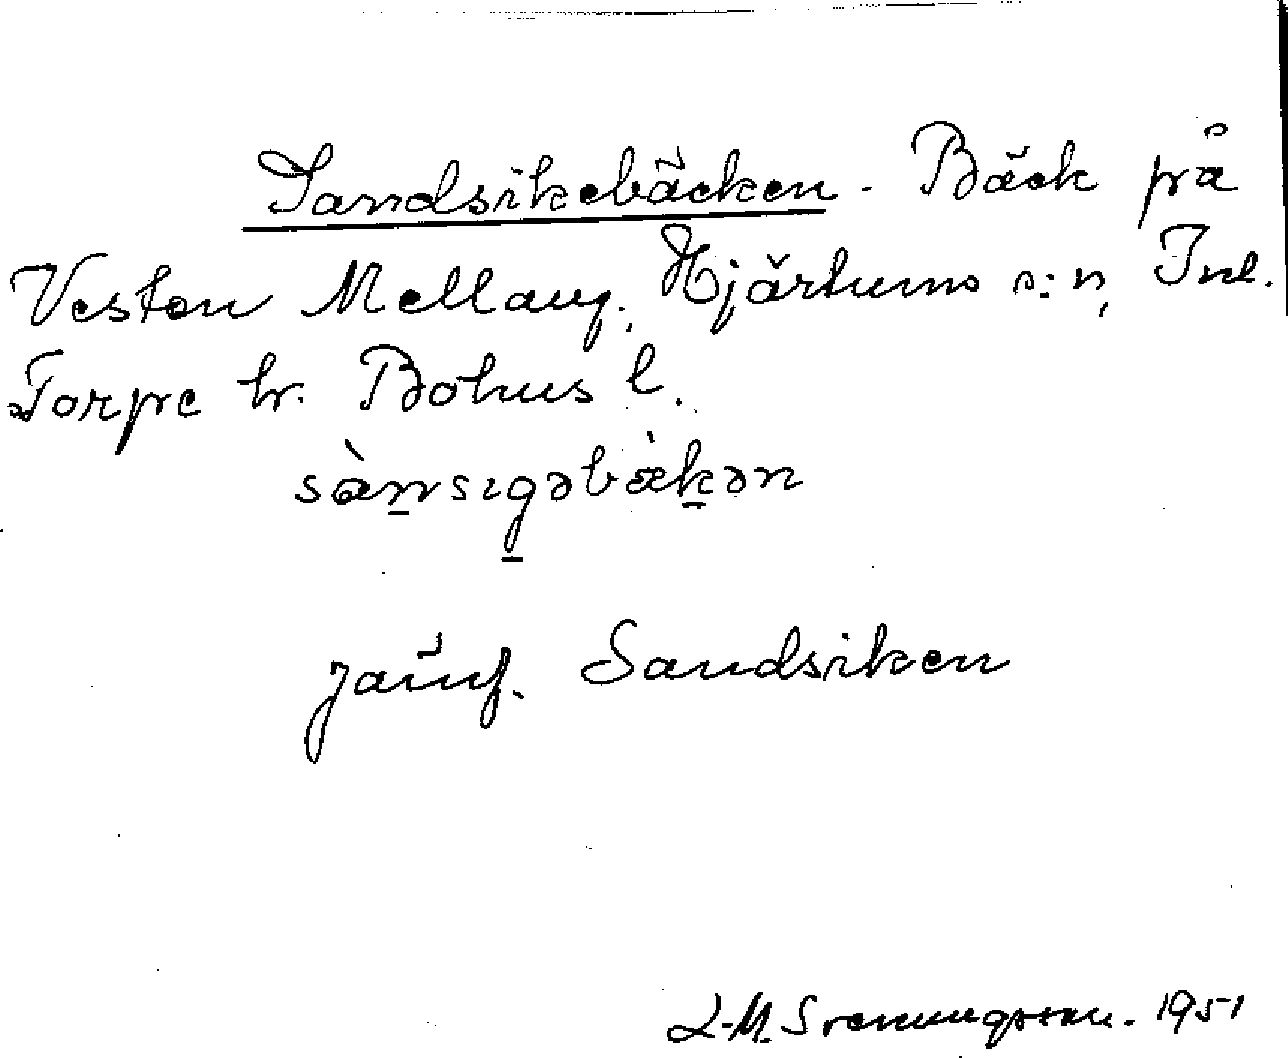 Sandsikebäcken - Bäck på
Veston Mellang., Hjärtums s:n, Inl.
Torpe hr. Bohus l.
sànsıgəbàkən
jämf. Sandsiken
L-M. Svenungsson. 1951